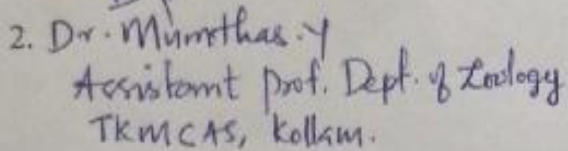 2. Dr. Mumthas. Y
Assistant Prof. Dept. of Zoology
TKMCAS, Kollam.